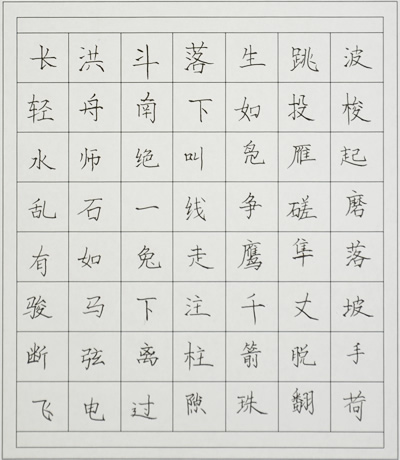 长洪斗落生跳波
轻舟南下如投梭
水师绝叫凫雁起
乱石一线争磋磨
有如兔走鹰隼落
骏马下注千丈坡
断弦离柱箭脱手
飞电过隙珠翻荷